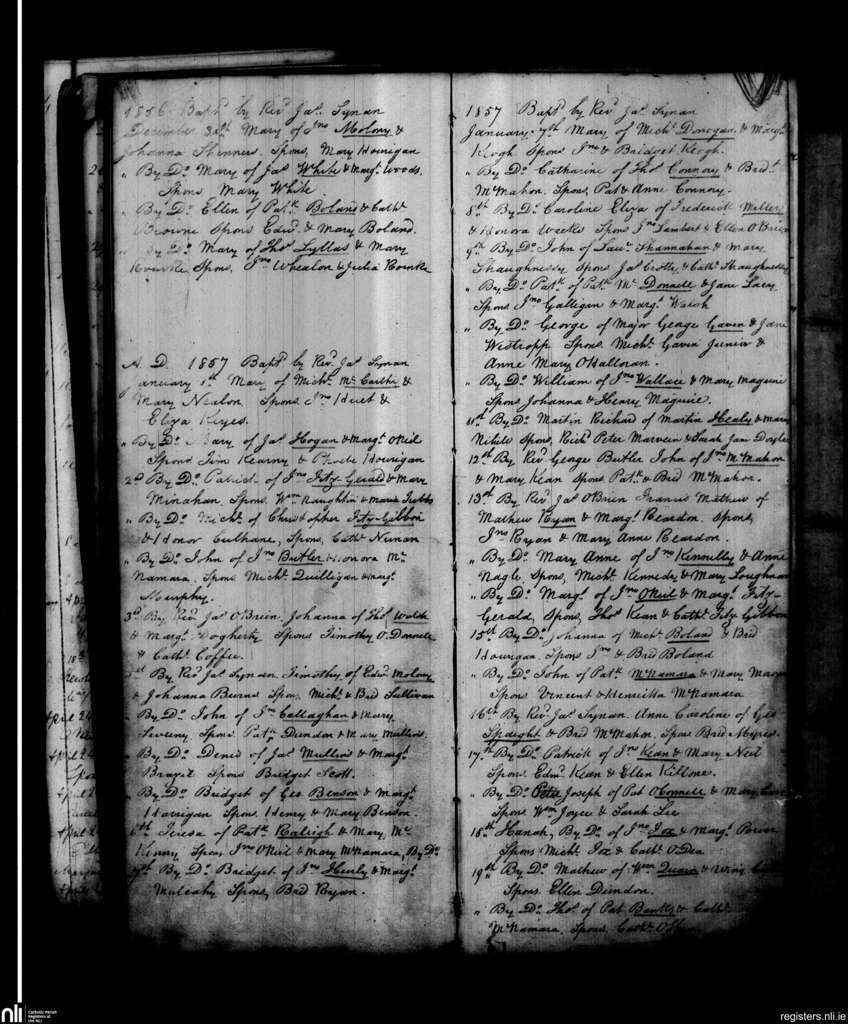 1856 Bapt. by Revd. Jas. Synan
December 30th Mary of Jno Molony &
Johanna Skinners. Spons. Mary Hourigan
" By Do. Mary of Jas White & Margt. Woods.
Spons Mary White
" By Do. Ellen of Patk. Boland & Cathe.
Browne Spons Edwd. & Mary Boland.
" By Do. Mary of Thos. Lyllas & Mary
Rourke Spons, Jno Whealon & Julia Rourke
A. D. 1857 Bapt. by Revd. Jas Synan
January 1st Mary of Michl. McCarthy &
Mary Nealon Spons. Jno Huet &
Eliza Keyes.
" By Do. Mary of Jas Hogan & Margt. ONeil
Spons Jim Kearny & Phoebe Hourigan
2d By Do. Patrick of Jno Fitz-Gerald & Mary
Minahan. Spons. Wm Naughtin & Maria
" By Do. Michl. of Christopher Fitz-Gibbon
& Honor Culhane, Spons. Cathe. Nunan
" By Do. John of Jno Butler & Honora Mc
Namara. Spons Michl. Quilligan & Margt.
Murphy.
3d By Revd. Jas OBrien. Johanna of Thos. Walsh
& Margt. Dogherty Spons Timothy O.Donnell
& Cathe. Coffee.
By Revd Jas Synan. Timothy of Edwd Molony
& Johanna Burns Spons. Michl. & Brd Sullivan
" By Do. John of Jno Callaghan & Mary
Spons Patk. Dundon & Mary Mullins.
By Do. Denis of Jas Mullins & Margt.
Spons Bridget Scott.
By Do. Bridget of Geo. Benson & Margt.
Horrigan Spons. Henry & Mary Benson.
6th Teresa of Patk. Raleigh & Mary Mc
Spons Jno ONeil & Mary McNamara, By Do.
7th By Do. Bridget of Jno Healy & Margt.
Mulcahy Spons, Brd Ryan.
1857 Bapt. by Revd Jas. Synan
January. 7th Mary of Michl. Donogan. & Margt.
Keogh Spons Jno & Bridget Keogh.
" By Do. Catharine of Thos Connory & Brdt.
McMahon. Spons. Pat & Anne Connory.
8th By Do. Caroline Eliza of Frederick Miller
& Honora Spons Jno Lambert & Ellen OBrien
9th By Do. John of Lawr. Shannahan & Mary
Shaughnessy Spons Jas Crotty & Cathe. Shaughnessy
" By Do. Patk. of Patk. Mc. Donnell & Jane Lacy
Spons Jno Galligan & Margt. Walsh
" By Do. George of Major George Gavin & Jane
Westropp Spons. Michl. Gavin Junior &
Anne Mary OHalloran.
" By Do. William of Jno Wallace & Mary Maguire
Spons Johanna & Henry Maguire.
11th By Do. Martin Richard of Martin Healy & Mary
Spons. Richd Peter & Sarah Jane Doyle
12th By Revd George Butler John of Jno McMahon
& Mary Kean Spons Patk. & Brd McMahon.
13th By Revd. Jas OBrien Francis Mathew of
Mathew Ryan & Margt. Reardon. Spons,
Jno Ryan & Mary Anne Reardon.
" By Do. Mary Anne of Jno Kennelly & Anne
Nagle. Spons, Michl. Kennedy & Mary Loughnan
" By Do. Margt. of Jno ONeil & Margt. Fitz-
Gerald, Spons, Thos Kean & Cathe. Fitz Gibbon
15th By Do. Johanna of Michl. Boland & Brd
Hourigan. Spons Jno & Brd Boland
" By Do. John of Patk. McNamara & Mary
Spons Vincent & Henrietta McNamara
16th By Revd. Jas Synan. Anne Caroline of Geo
Speight & Brd McMahon. Spons Brd
17th By Do. Patrick of Jno Kean & Mary Neil
Spons. Edmd. Kean & Ellen Killone.
" By Do. Joseph of Pat OConnell & Mary
Spons Wm Joyce & Sarah Lee
18th Hanah, By Do. of Jno Fox & Margt. Power
Spons Michl. Fox & Cathe. ODea
19th By Do. Mathew of Wm &
Spons. Ellen Dundon.
" By Do. Thos. of Pat Banks & Cathe.
McNamara. Spons, Cathe.
nli
Catholic Parish
Registers at
the NLI
registers.nli.ie